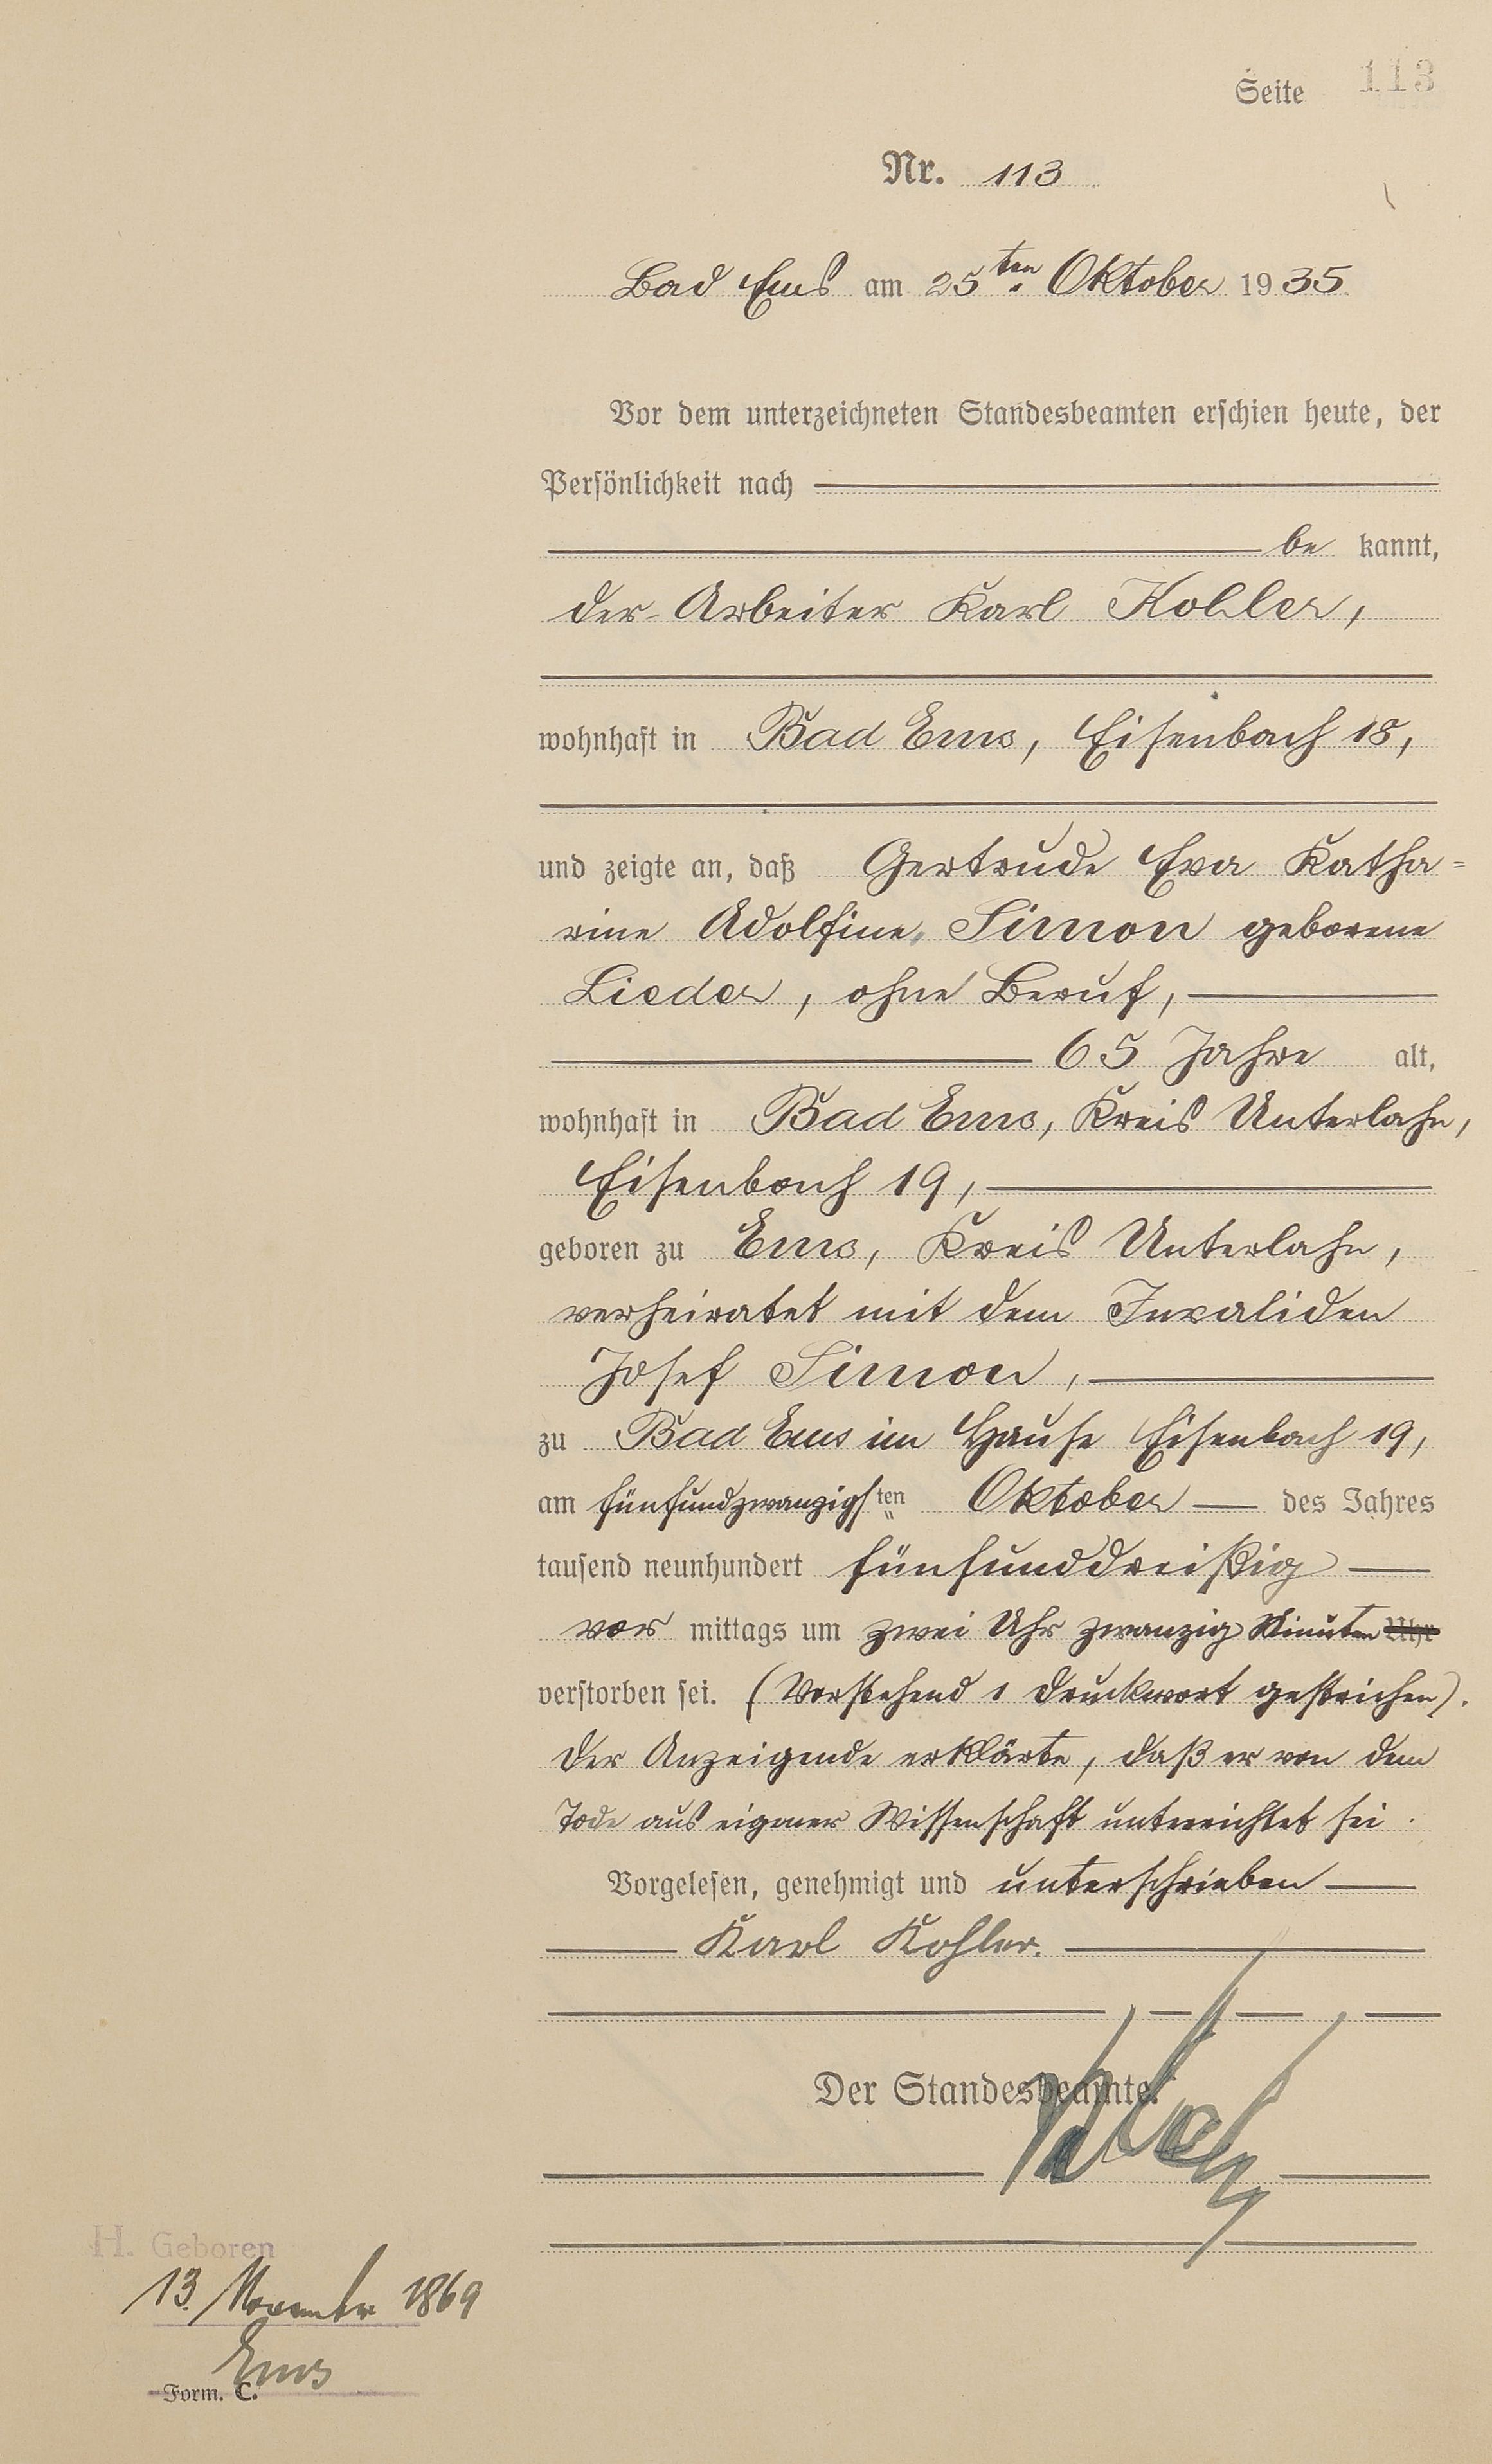 Seite 113
Nr. 113
Bad Ems am 25ten Oktober 1935
Vor dem unterzeichneten Standesbeamten erschien heute, der
Persönlichkeit nach
be kannt,
der Arbeiter Karl Kohler,
wohnhaft in Bad Ems, Eisenbach 18,
und zeigte an, daß Gertrude Eva Katha=
rine Adolfine Simon geborene
Lieder, ohne Beruf,
65 Jahre alt,
wohnhaft in Bad Ems, Kreis Unterlahn,
Eisenbach 19,
geboren zu Ems, Kreis Unterlahn,
verheiratet mit dem Invaliden
Josef Simon,
zu Bad Ems im Hause Eisenbach 19,
am fünfundzwanzigsten Oktober des Jahres
tausend neunhundert fünfunddreißig
vor mittags um zwei Uhr zwanzig Minuten Uhr
verstorben sei. (Vorstehend 1 Druckwort gestrichen).
Der Anzeigende erklärte, daß er von dem
Tode aus eigener Wissenschaft unterrichtet sei.
Vorgelesen, genehmigt und unterschrieben
Karl Kohler.
Der Standesbeamte.
H. Geboren
13. November 1869
Ems
Form. C.